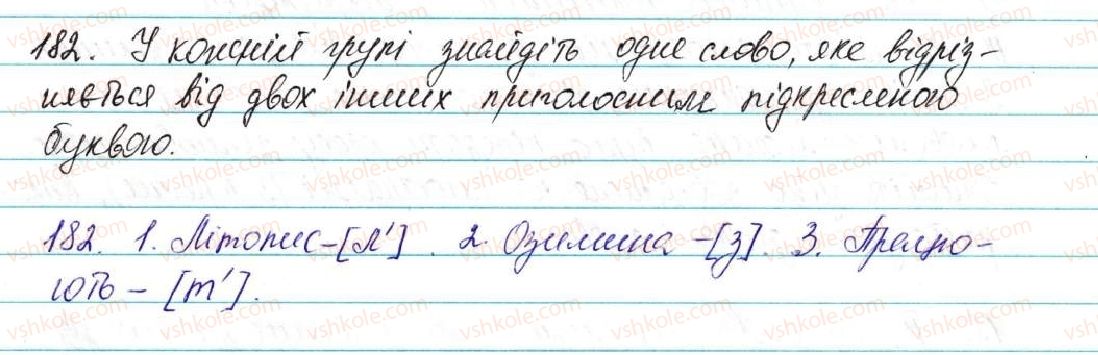 182. У кожній групі знайдіть одне слово, яке відріз-
няється від двох інших приголосним підкресленого
буквою.
182. 1. Літопис-[л']. 2. Озимина-[з]. 3. Працю-
ють - [т'].